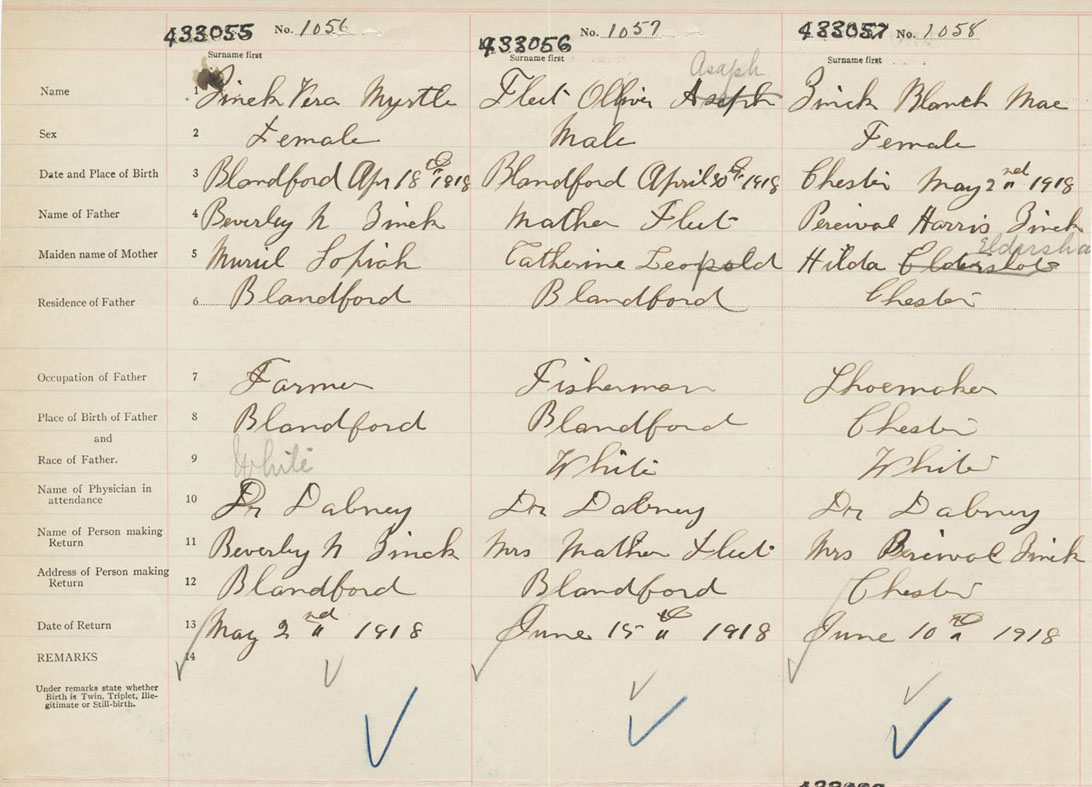 433055 No. 1056 433056 No. 1057 433057 No. 1058
Surname first Surname first Surname first
Asaph
Name 1 Zinck Vera Myrtle Fleet Olliver Aseph Zinck Blanch Mae
Sex 2 Female Male Female
Date and Place of Birth 3 Blandford Apr 18th 1918 Blandford April 30th 1918 Chester May 2nd 1918
Name of Father 4 Beverly N Zinck Mather Fleet Percival Harris Zinck
Eldersha
Maiden name of Mother 5 Muriel Sopiah Catherine Leopold Hilda
Residence of Father 6 Blandford Blandford Chester
Occupation of Father 7 Farmer Fisherman Shoemaker
Place of Birth of Father 8 Blandford Blandford Chester
and
Race of Father. 9 White White White
Name of Physician in
attendance 10 Dr Dabney Dr Dabney Dr Dabney
Name of Person making
Return 11 Beverly N Zinck Mrs Mather Fleet Mrs Percival Zinck
Address of Person making
Return 12 Blandford Blandford Chester
Date of Return 13 May 2nd 1918 June 15th 1918 June 10th 1918
REMARKS 14
Under remarks state whether
Birth is Twin, Triplet, Ille-
gitimate or Still-birth.